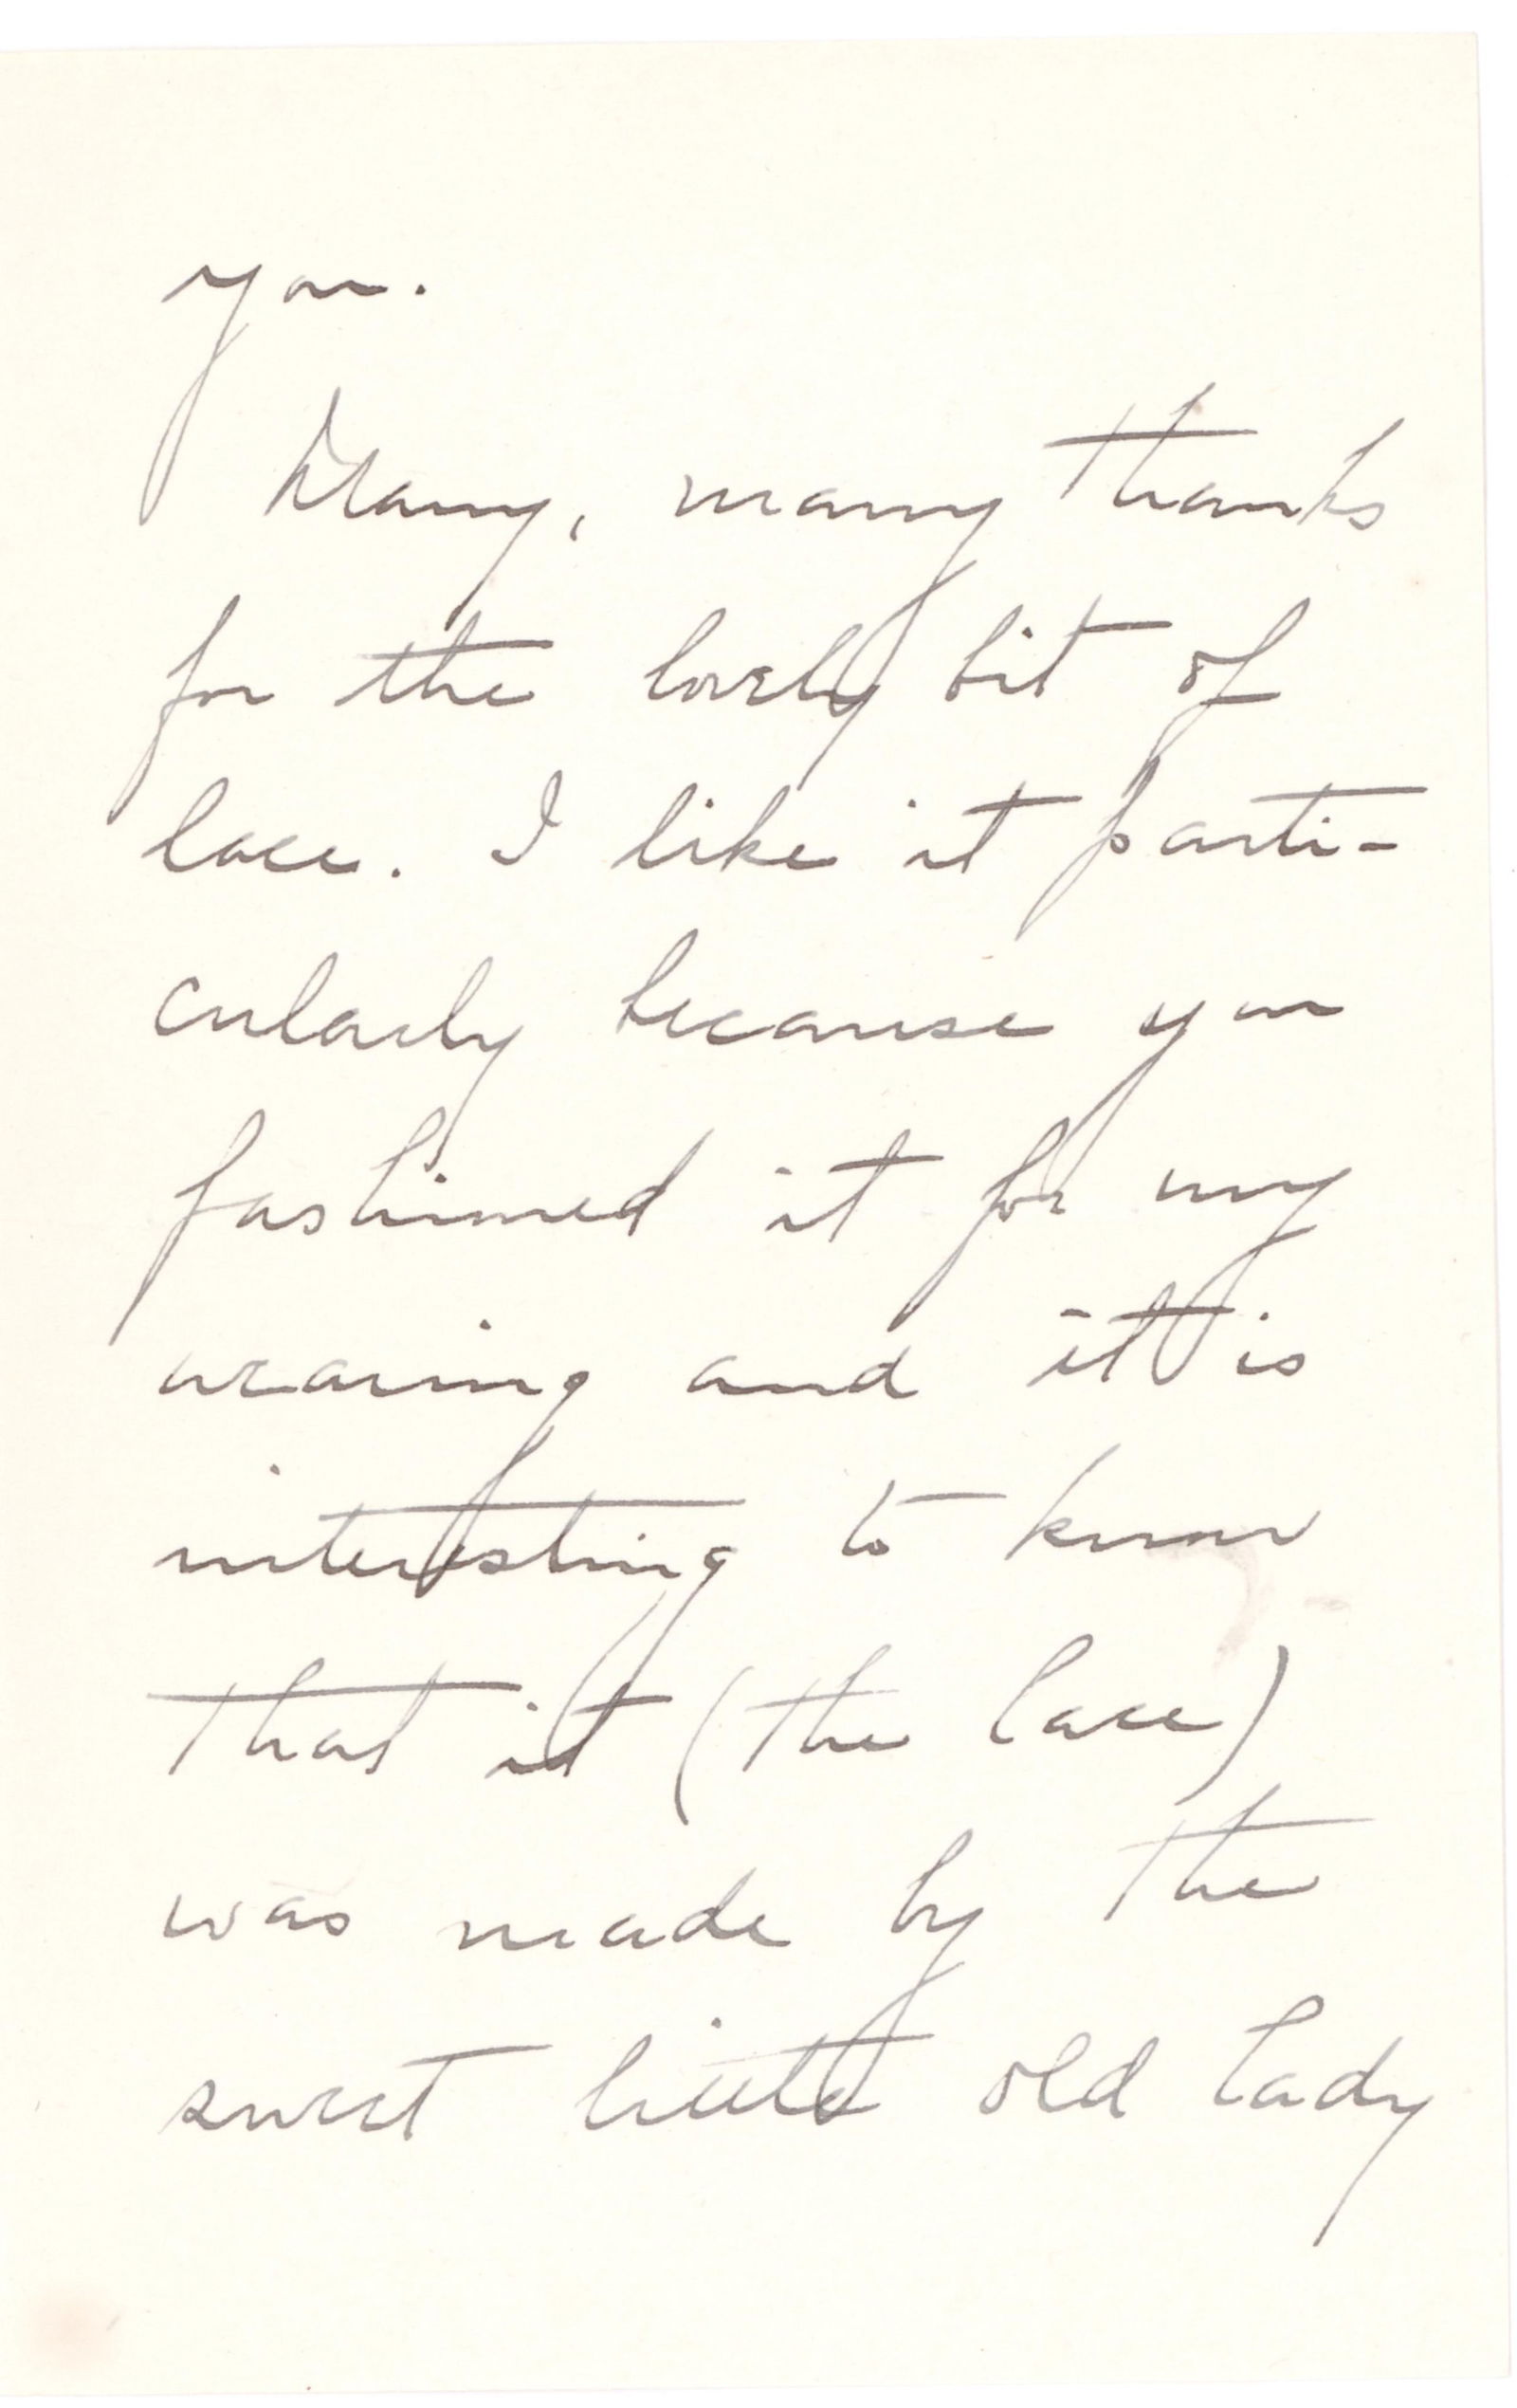 you.
Many, many thanks
for the lovely bit of
lace. I like it parti-
cularly because you
fashioned it for my
wearing and it is
interesting to know
that it (the lace)
was made by the
sweet little old lady